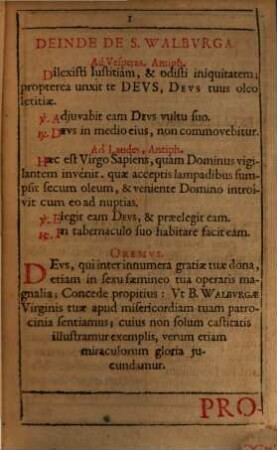 1
DEINDE DE S. WALBVRGA.
Ad Vesperas. Antiph.
Dilexisti Iustitiam, & odisti iniquitatem;
propterea unxit te DEVS, DEVS tuus oleo
letitiæ.
℣. Adjuvabit eam DEVS vultu suo.
℟. Deus in medio eius, non commovebitur.
Ad Laudes, Antiph.
Hæc est Virgo Sapiens, quàm Dominus vigi-
lantem invénit. quæ acceptis lampadibus sum-
psit secum oleum, & veniente Domino introi-
vit cum eo ad nuptias.
℣. Elegit eam DEVS, & præelegit eam.
℟. In tabernaculo suo habitare facit eam.
OREMVS.
DEVS, qui inter innumera gratiæ tuæ dona,
etiam in sexu fæmineo tua operaris ma-
gnalia; Concede propitius: Vt B. WALBVRGÆ
Virginis tuæ apud misericordiam tuam patro-
cinia sentiamus; cuius non solum castitatis
illustramur exemplis, verum etiam
miraculorum gloria ju-
cundamur.
PRO-